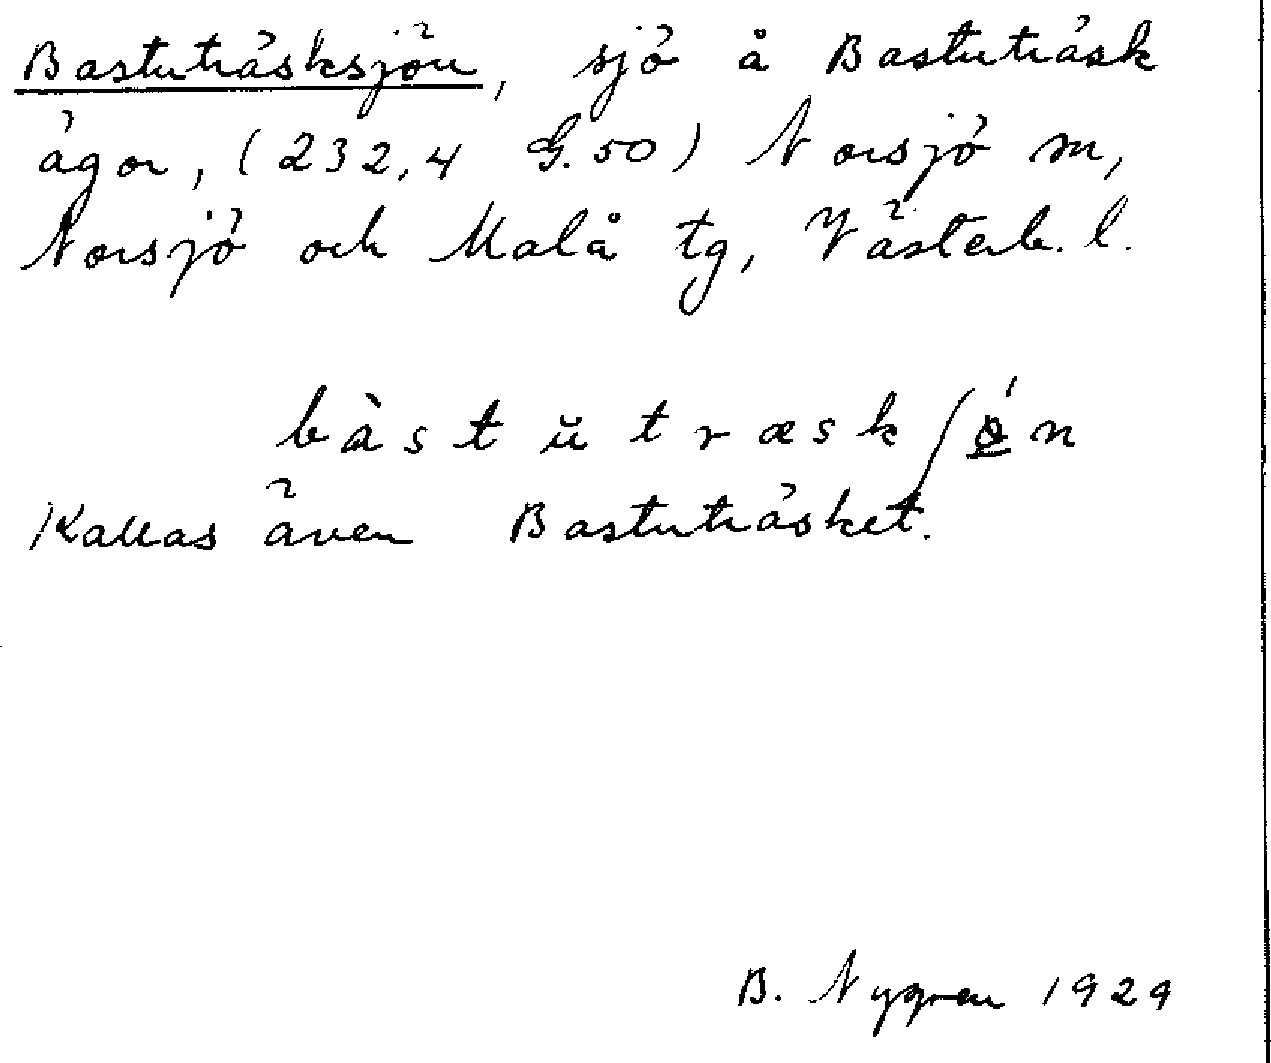 Bastuträsksjön, sjö å Bastuträsk
ägor, (232,4 G.50) Norsjö sn,
Norsjö och Malå tg, Västerb. l.
bàstŭtræskʃǿn
Kallas även Bastuträsket.
B. Nygren 1929